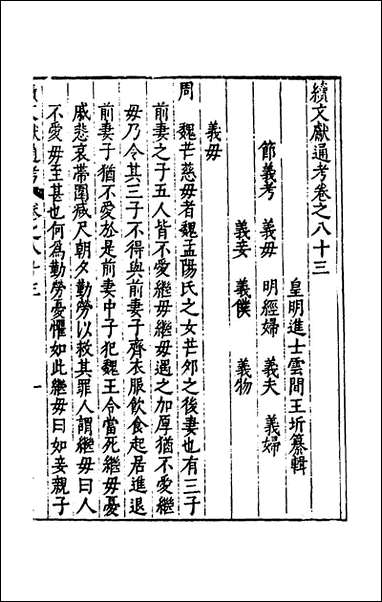 續文獻通考卷之八十三
皇明進士雲間王圻纂輯
節義考 義母 明經婦 義夫 義婦
義妾 義僕 義物
義母
周 魏芒慈母者魏孟陽氏之女芒郊之後妻也有三子
前妻之子五人皆不愛繼母繼母遇之加厚猶不愛繼
母乃令其三子不得與前妻子齊衣服飲食起居進退
前妻子猶不愛於是前妻中子犯魏王令當死繼母憂
戚悲哀帶圍減尺朝夕勤勞以救其罪人謂繼母曰人
不愛母至甚也何為勤勞憂懼如此繼母曰如妾親子